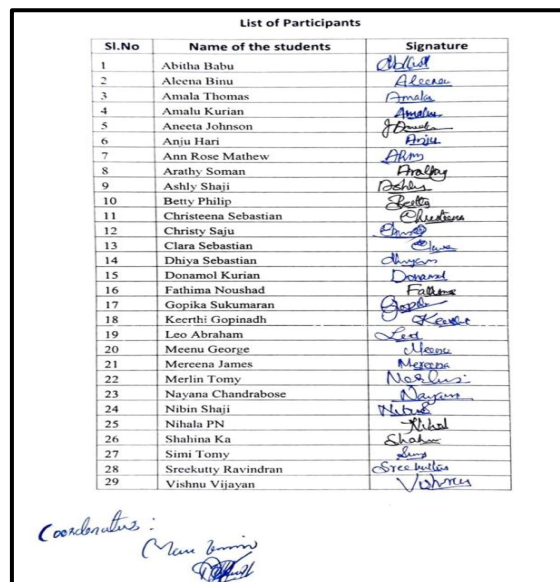 List of Participants
Sl.No Name of the students Signature
1 Abitha Babu
2 Aleena Binu Aleena
3 Amala Thomas Amala
4 Amalu Kurian Amalu
5 Aneeta Johnson
6 Anju Hari Anju
7 Ann Rose Mathew
8 Arathy Soman
9 Ashly Shaji Ashly
10 Betty Philip Betty
11 Christeena Sebastian
12 Christy Saju
13 Clara Sebastian
14 Dhiya Sebastian
15 Donamol Kurian Donamol
16 Fathima Noushad
17 Gopika Sukumaran
18 Keerthi Gopinadh
19 Leo Abraham Leo
20 Meenu George Meenu
21 Mereena James Mereena
22 Merlin Tomy
23 Nayana Chandrabose
24 Nibin Shaji
25 Nihala PN
26 Shahina Ka
27 Simi Tomy
28 Sreekutty Ravindran
29 Vishnu Vijayan Vishnu